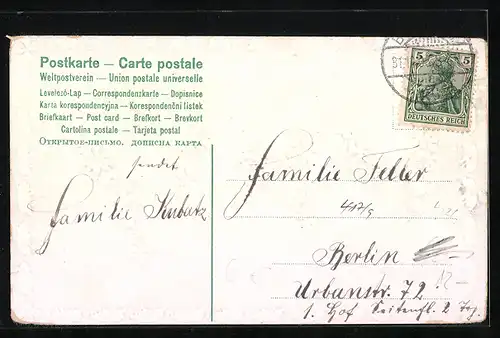 Postkarte — Carte postale
Weltpostverein — Union postale universelle
Levelező-Lap — Correspondenzkarte — Dopisnice
Karta korespondencyjna — Korespondenční listek
Briefkaart — Post card — Brefkort — Brevkort
Cartolina postale — Tarjeta postal
Открытое-письмо. дописна карта
sendet
Familie Kubatz
5 5
DEUTSCHES REICH
Familie Feller
Berlin
Urbanstr. 72
1. Hof Seitenfl. 2 Trp.